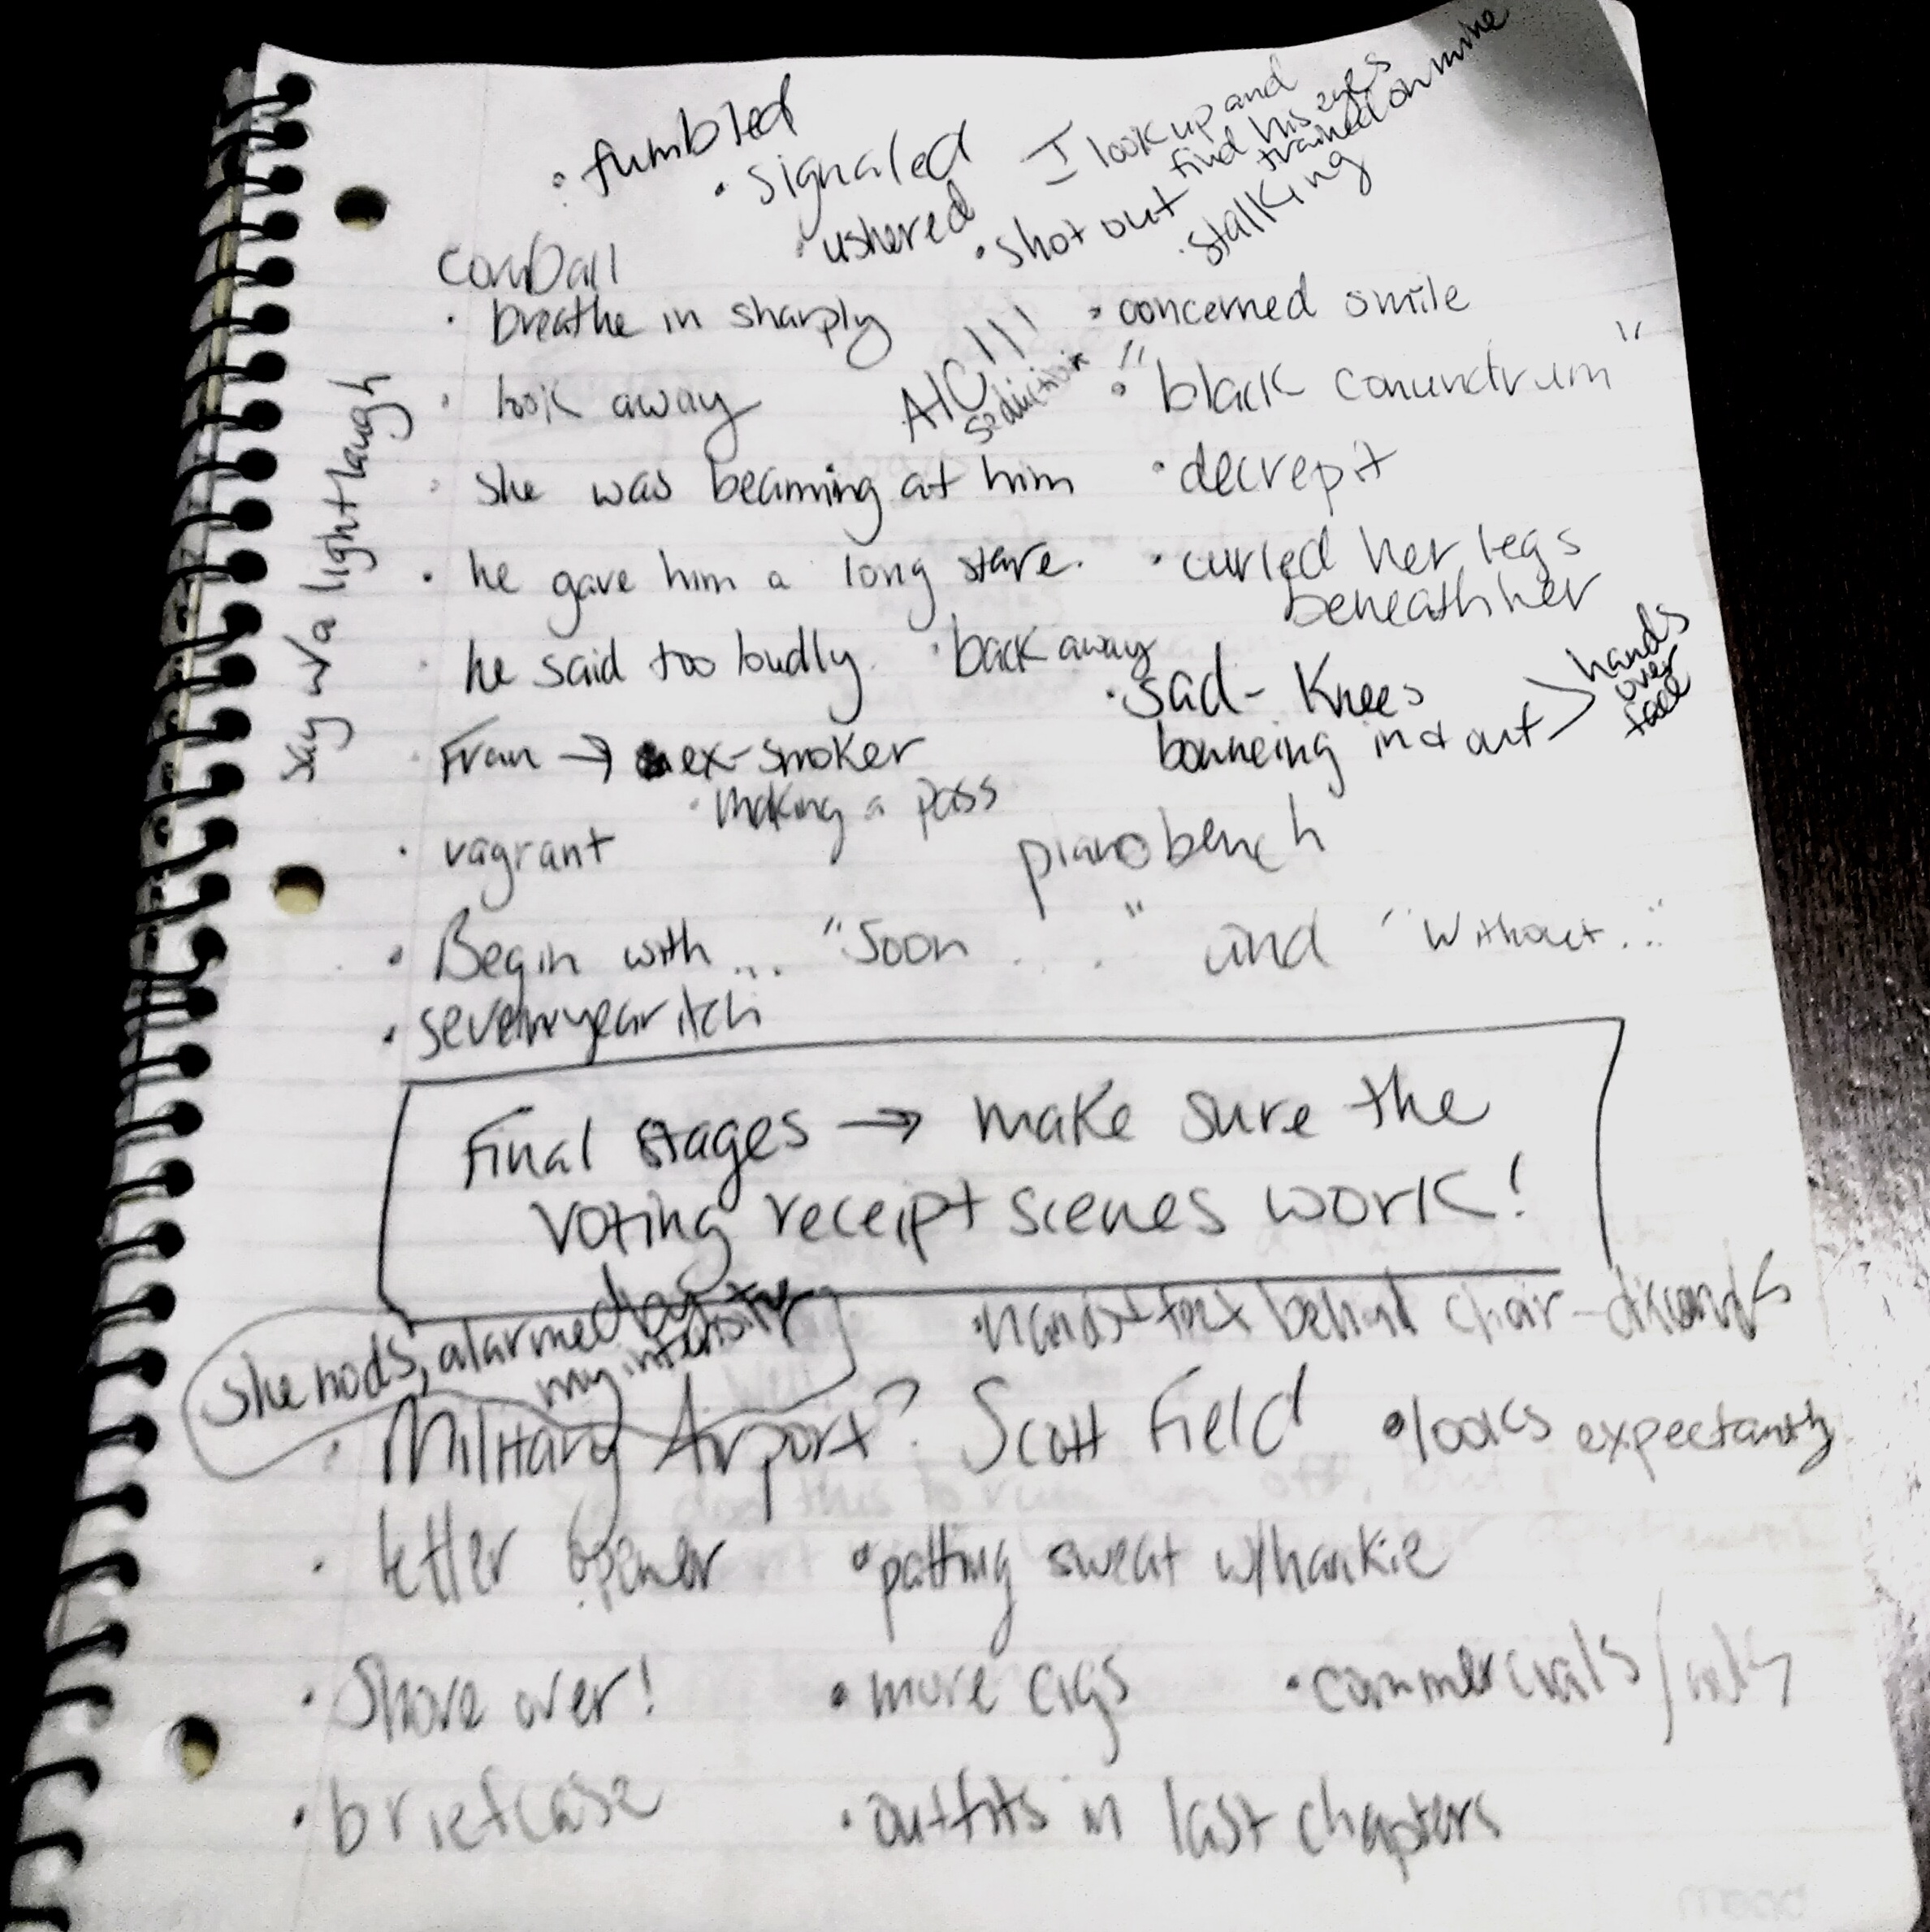 • fumbled
• signaled
I look up and
find his eyes
trained on mine
• ushered
• shot out
• stalking
cornball
• breathe in sharply
• concerned smile
• look away
seduction
• "black conundrum"
• she was beaming at him
• decrepit
• he gave him a long stare.
• curled her legs
beneath her
• he said too loudly.
• back away
• sad - knees
bouncing in & out >
hands
over
face
say w/a light laugh
• Fran → ex-smoker
• making a pass
• vagrant
piano bench
• Begin with... "Soon . . . ." and "Without..."
• seven year itch
Final stages → make sure the
voting receipt scenes work!
she nods, alarmed by the
my intensity
behind chair -
• Military Airport? Scott Field
• looks expectantly
• letter opener
• patting sweat w/hankie
• Shove over!
• more cigs
• commercials/
• briefcase
• outfits in last chapters